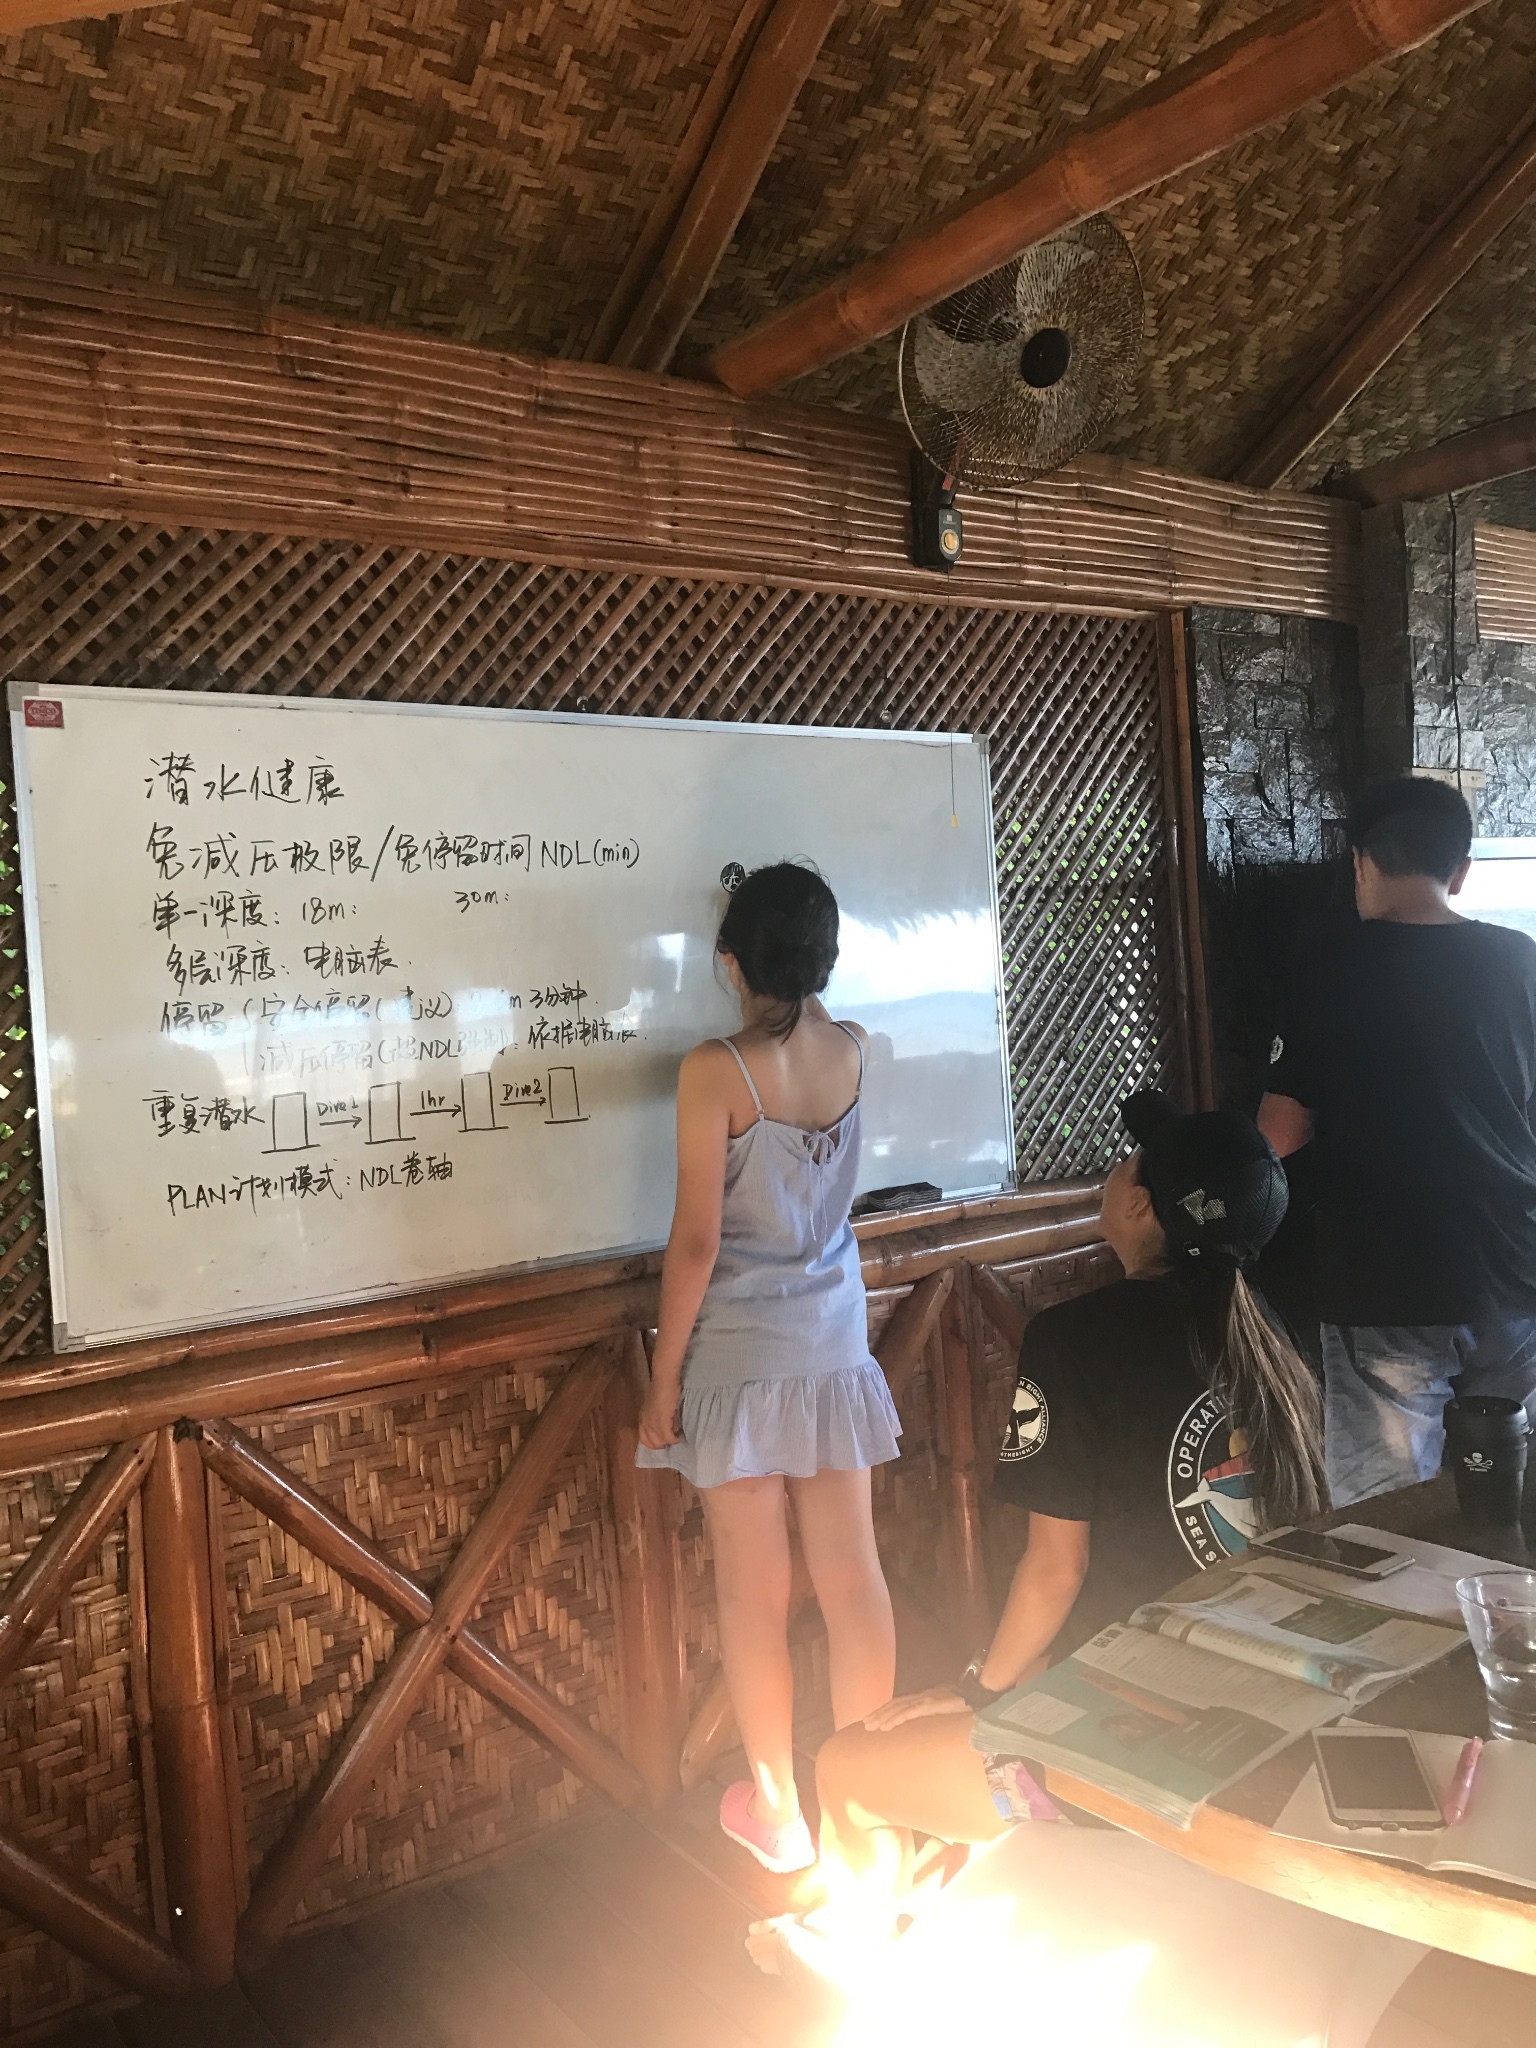 潜水健康
免减压极限/免停留时间 NDL(min)
单一深度: 18m: 30m:
多层深度: 电脑表.
停留 安全停留(建议) m 3分钟.
减压停留(超NDL强制): 依据电脑表.
重复潜水 Dive1 1hr Dive2
PLAN计划模式: NDL卷轴
OPERATI
SEA S